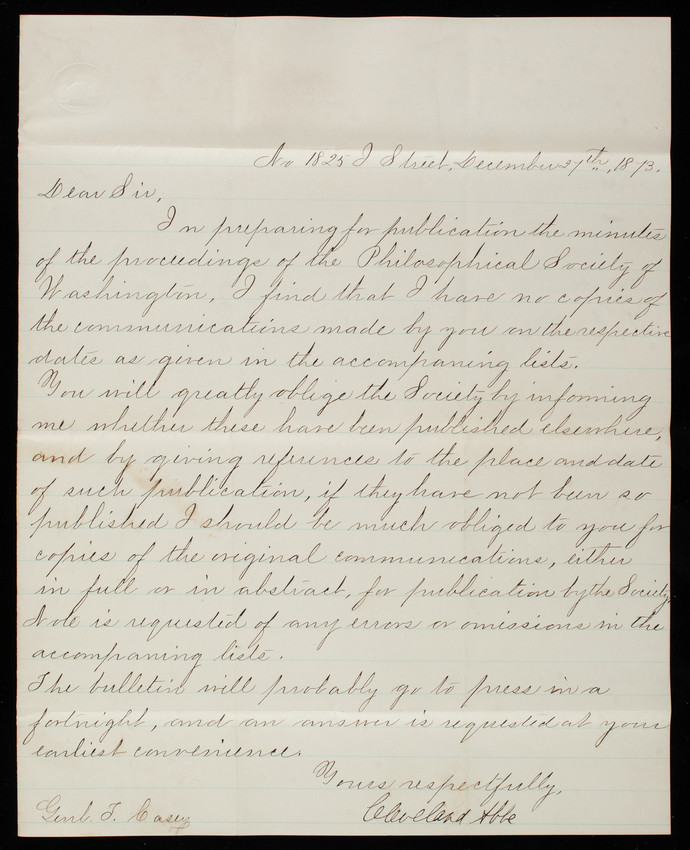 No 1825 I Street, December 27th, 1873.
Dear Sir,
In preparing for publication the minutes
of the proceedings of the Philosophical Society of
Washington, I find that I have no copies of
the communications made by you on the respective
dates as given in the accompaning lists.
You will greatly oblige the Society by informing
me whether these have been published elsewhere,
and by giving references to the place and date
of such publication, if they have not been so
published I should be much obliged to you for
copies of the original communications, either
in full or in abstract, for publication by the Society.
Note is requested of any errors or omissions in the
accompaning lists.
The bulletin will probably go to press in a
fortnight, and an answer is requested at your
earliest convenience.
Yours respectfully,
Cleveland Abbe
Genl. T. Casey